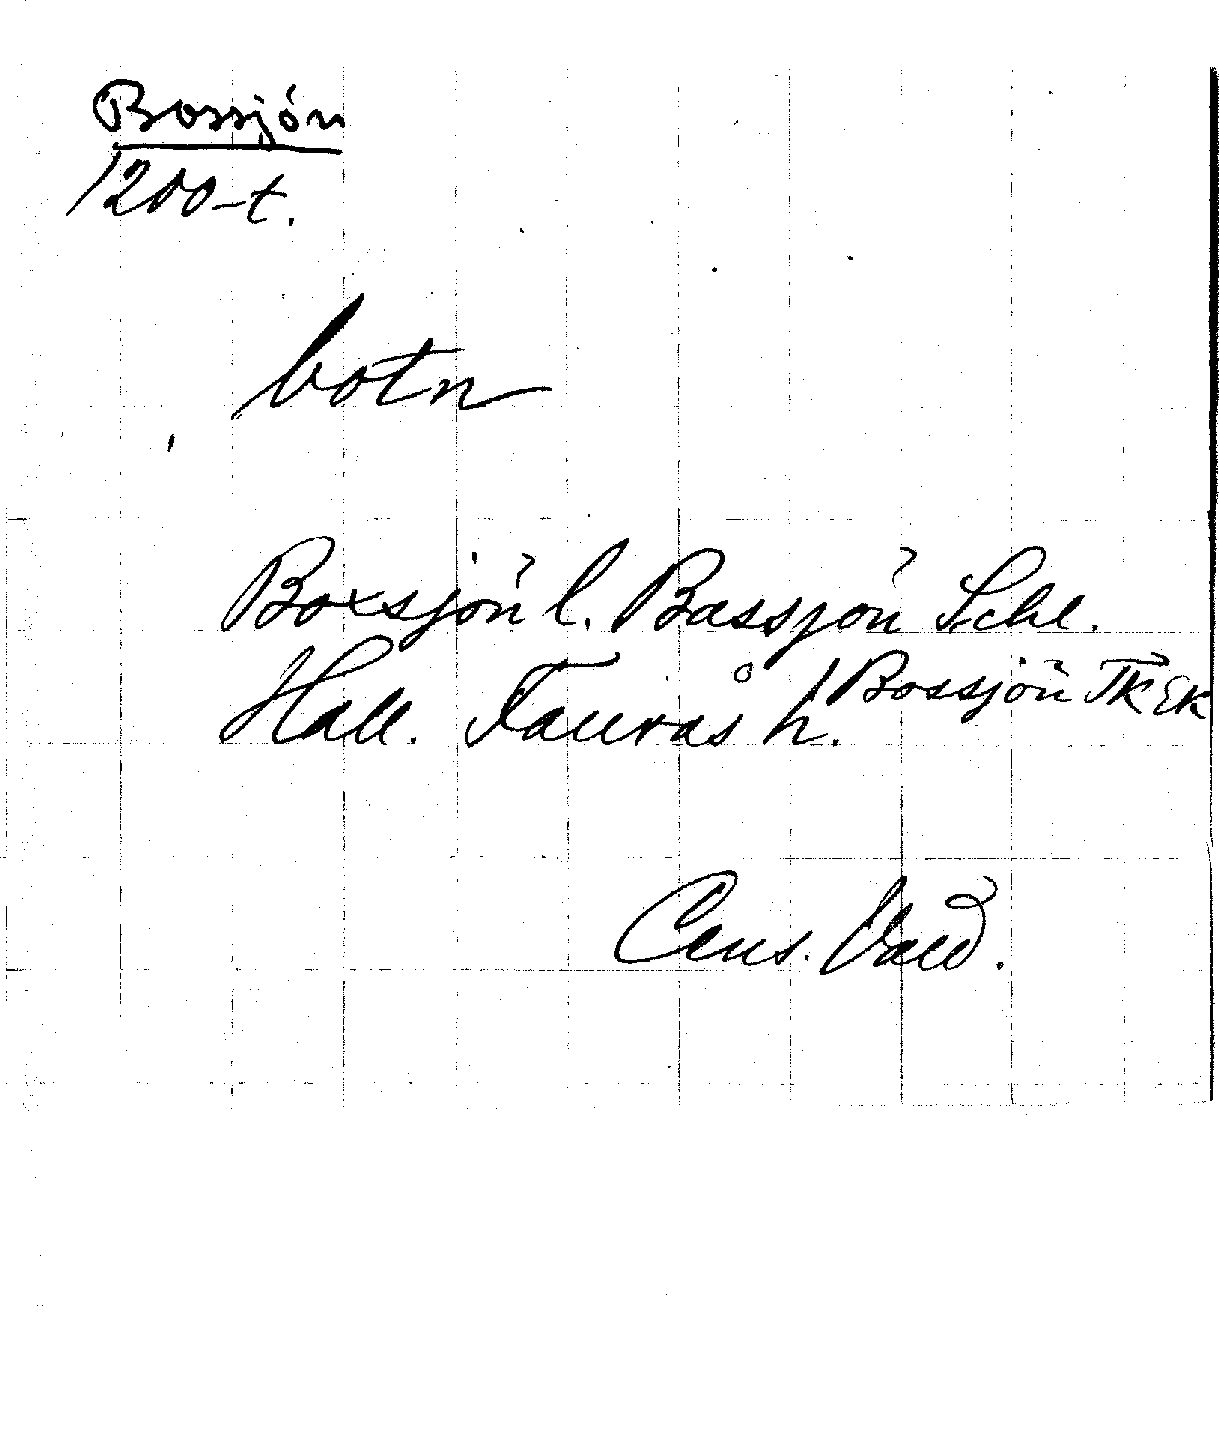 Bossjön
1200-t.
botn
Boxsjön l. Bassjön Schl.
Hall. Faurås h. / Bossjön TK EK
Cens. Vald.